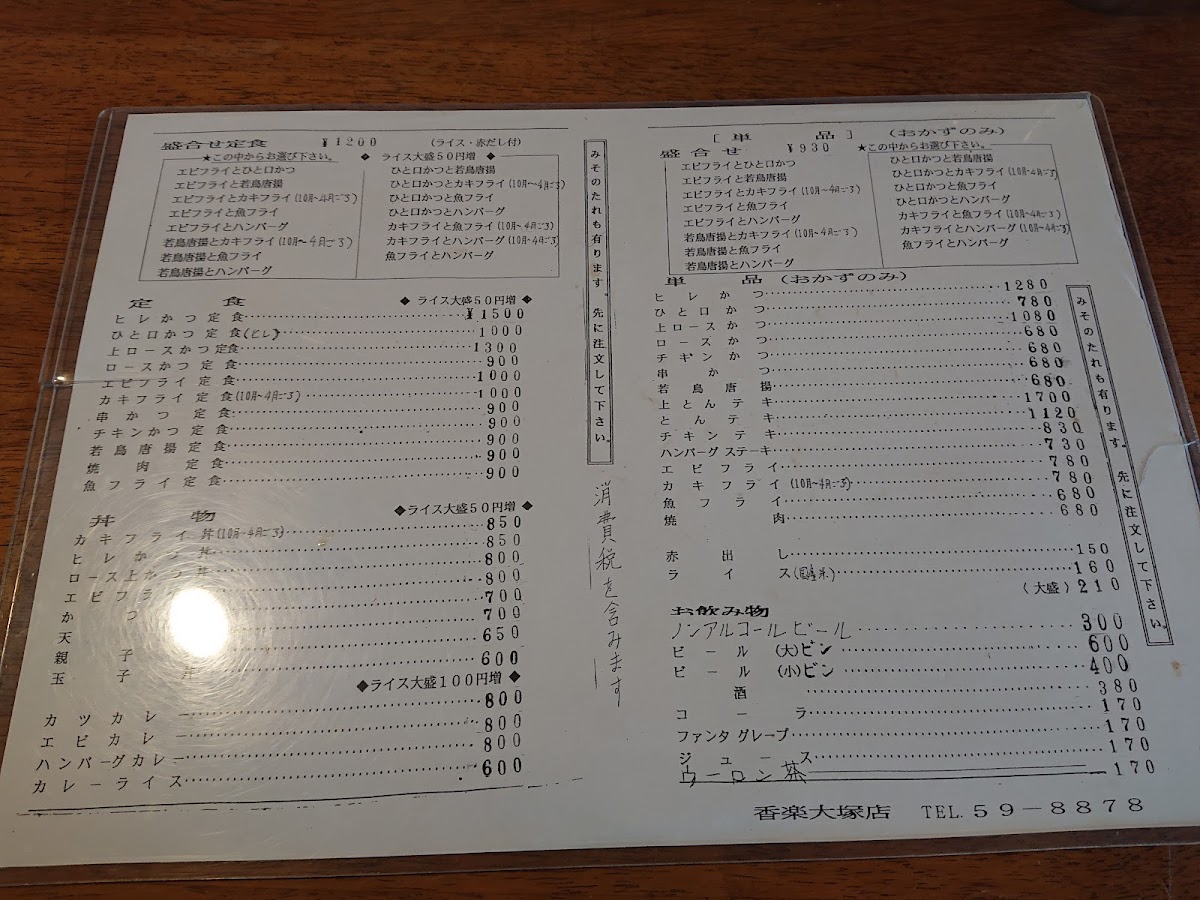 盛合せ定食 ¥1200 (ライス・赤だし付)
★この中からお選び下さい。 ◆ ライス大盛50円増 ◆
エビフライとひと口かつ
エビフライと若鳥唐揚
エビフライとカキフライ(10月〜4月ごろ)
エビフライと魚フライ
エビフライとハンバーグ
若鳥唐揚とカキフライ(10月〜4月ごろ)
若鳥唐揚と魚フライ
若鳥唐揚とハンバーグ
ひと口かつと若鳥唐揚
ひと口かつとカキフライ(10月〜4月ごろ)
ひと口かつと魚フライ
ひと口かつとハンバーグ
カキフライと魚フライ(10月〜4月ごろ)
カキフライとハンバーグ(10月〜4月ごろ)
魚フライとハンバーグ
定食 ◆ ライス大盛50円増 ◆
ヒレかつ定食 ¥1500
ひと口かつ定食(ヒレ) 1000
上ロースかつ定食 1300
ロースかつ定食 900
エビフライ定食 1000
カキフライ定食(10月〜4月ごろ) 1000
串かつ定食 900
チキンかつ定食 900
若鳥唐揚定食 900
焼肉定食 900
魚フライ定食 900
丼物 ◆ライス大盛50円増◆
カキフライ丼(10月〜4月ごろ) 850
ヒレかつ丼 850
ロース上かつ丼 800
エビフライ 800
かつ 700
天 700
親子 650
玉子丼 600
◆ライス大盛100円増◆
カツカレー 800
エビカレー 800
ハンバーグカレー 800
カレーライス 600
みそのたれも有ります。先に注文して下さい。
消費税を含みます
[単品] (おかずのみ)
盛合せ ¥930 ★この中からお選び下さい。
エビフライとひと口かつ
エビフライと若鳥唐揚
エビフライとカキフライ(10月〜4月ごろ)
エビフライと魚フライ
エビフライとハンバーグ
若鳥唐揚とカキフライ(10月〜4月ごろ)
若鳥唐揚と魚フライ
若鳥唐揚とハンバーグ
ひと口かつと若鳥唐揚
ひと口かつとカキフライ(10月〜4月ごろ)
ひと口かつと魚フライ
ひと口かつとハンバーグ
カキフライと魚フライ(10月〜4月ごろ)
カキフライとハンバーグ(10月〜4月ごろ)
魚フライとハンバーグ
単品(おかずのみ)
ヒレかつ 1280
ひと口かつ 780
上ロースかつ 1080
ロースかつ 680
チキンかつ 680
串かつ 680
若鳥唐揚 680
上とんテキ 1700
とんテキ 1120
チキンテキ 830
ハンバーグステーキ 730
エビフライ 780
カキフライ(10月〜4月ごろ) 780
魚フライ 680
焼肉 680
赤出し 150
ライス(国産米) 160
(大盛) 210
お飲み物
ノンアルコールビール 300
ビール(大)ビン 600
ビール(小)ビン 400
酒 380
コーラ 170
ファンタグレープ 170
ジュース 170
ウーロン茶 170
みそのたれも有ります。先に注文して下さい。
香楽大塚店 TEL.59-8878